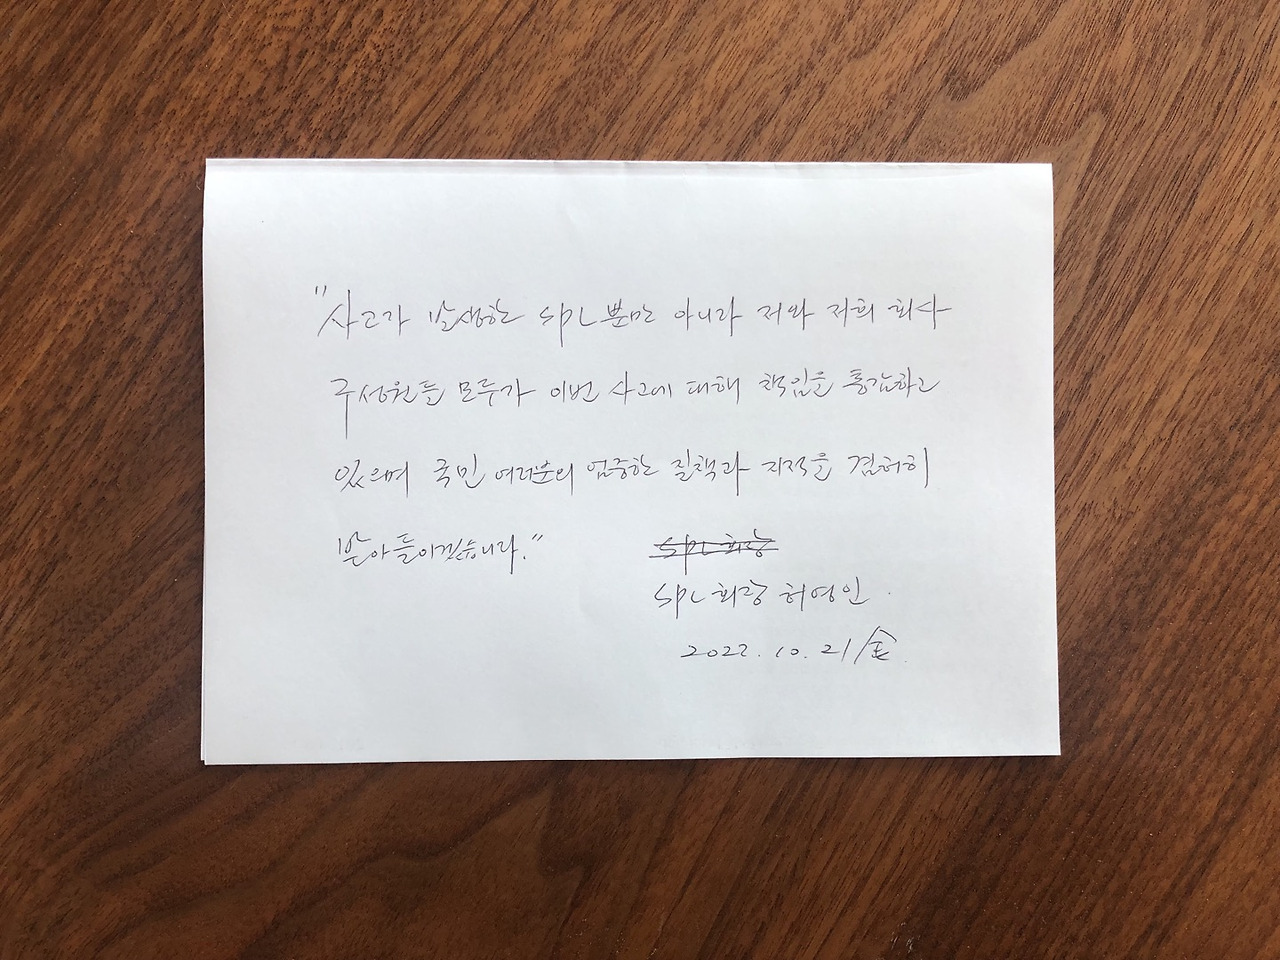 "사고가 발생한 SPL 뿐만 아니라 저와 저희 회사
구성원들 모두가 이번 사고에 대해 책임을 통감하고
있으며 국민 여러분의 엄중한 질책과 지적을 겸허히
받아들이겠습니다."
SPL 회장
SPL 회장 허영인.
2022. 10. 21/金.